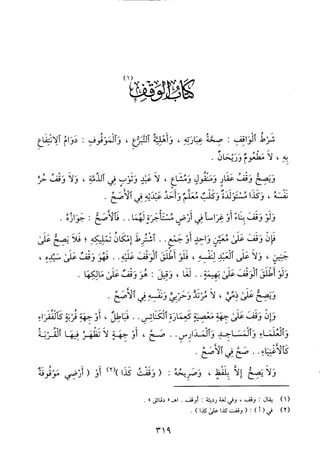 كتاب الوقف (١)
شرط الواقف : صحة عبارته ، وأهلية التبرع ، والموقوف : دوام الانتفاع
به ، لا مطعوم وريحان .
ويصح وقف عقار ومنقول ومشاع ، لا عبد وثوب في الذمة ، ولا وقف حر
نفسه ، وكذا مستولدة وكلب معلم وأحد عبديه في الأصح .
ولو وقف بناء أو غراسا في أرض مستأجرة لهما .. فالأصح : جوازه .
فإن وقف على معين واحد أو جمع .. اشترط إمكان تمليكه ؛ فلا يصح على
جنين ، ولا على العبد لنفسه ، فلو أطلق الوقف عليه .. فهو وقف على سيده ،
ولو أطلق الوقف على بهيمة .. لغا ، وقيل : هو وقف على مالكها .
ويصح على ذمي ، لا مرتد وحربي ونفسه في الأصح .
وإن وقف على جهة معصية كعمارة الكنائس .. فباطل ، أو جهة قربة كالفقراء
والعلماء والمساجد والمدارس .. صح ، أو جهة لا تظهر فيها القربة
كالأغنياء .. صح في الأصح .
ولا يصح إلا بلفظ ، وصريحه : ( وقفت كذا )(٢) أو ( أرضي موقوفة
(١) يقال : وقف ، وفي لغة رديئة : أوقف . اهـ « دقائق » .
(٢) في ( أ ) : ( وقفت كذا على كذا ) .
٣١٩